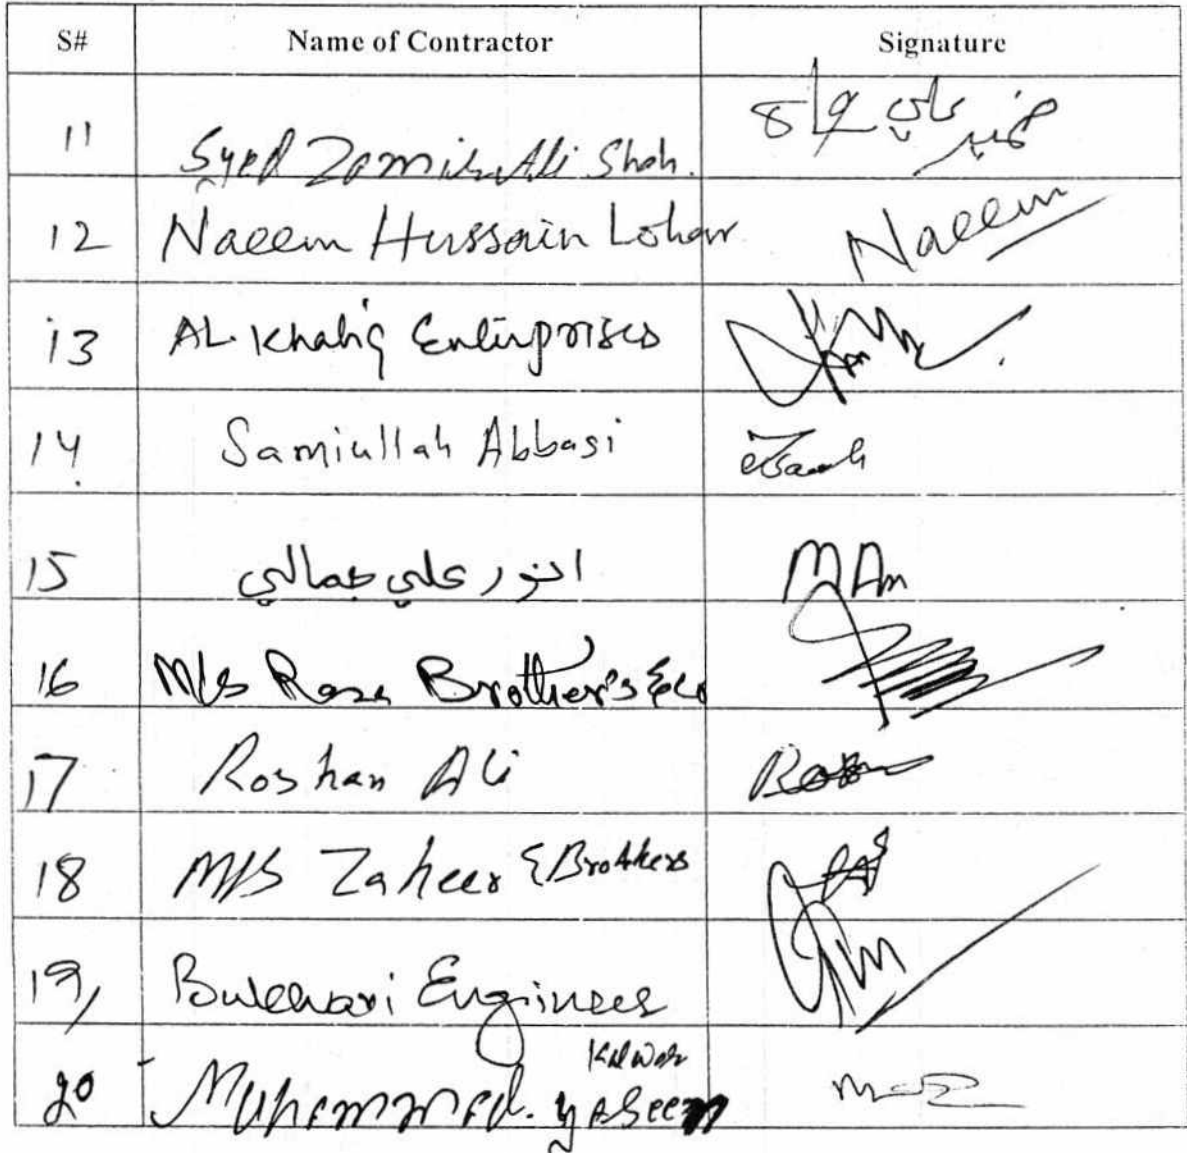 S# Name of Contractor Signature
11 Syed Zamir Ali Shah. ضمير علي شاھ
12 Naeem Hussain Lohar Naeem
13 AL-Khaliq Enterprises
14 Samiullah Abbasi
15 انور علي جمالي MAm
16 M/s Raza Brother's & Co
17 Roshan Ali
18 M/S Zaheer & Brothers
19, Bukhari Engineer
Kalwar
20 Muhammad. yaseen